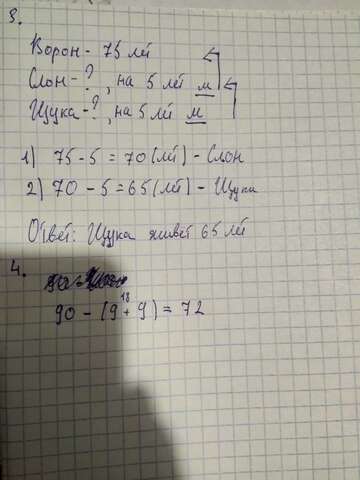 3.
Ворон - 75 лет
Слон - ?, на 5 лет м
Щука - ?, на 5 лет м
1) 75 - 5 = 70 (лет) - Слон
2) 70 - 5 = 65 (лет) - Щука
Ответ: Щука живет 65 лет
4.
18
90 - (9 + 9) = 72